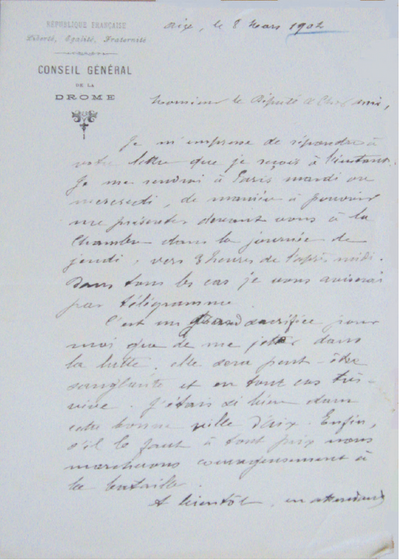 RÉPUBLIQUE FRANÇAISE
Liberté, Egalité, Fraternité
CONSEIL GÉNÉRAL
DE LA
DROME
Aix, le 8 Mars 1902
Monsieur le Député & Cher ami,
Je m'empresse de répondre à
votre lettre que je reçois à l'instant.
Je me rendrai à Paris mardi ou
mercredi, de manière à pouvoir
me présenter devant vous à la
Chambre dans la journée de
jeudi, vers 3 heures de l'après midi.
Dans tous les cas je vous aviserai
par télégramme.
C'est un grand sacrifice pour
moi que de me jeter dans
la lutte. elle sera peut-être
sanglante et en tout cas très
J'étais si bien dans
cette bonne ville d'Aix. Enfin,
s'il le faut à tout prix nous
marcherons courageusement à
la bataille.
A bientôt, en attendant